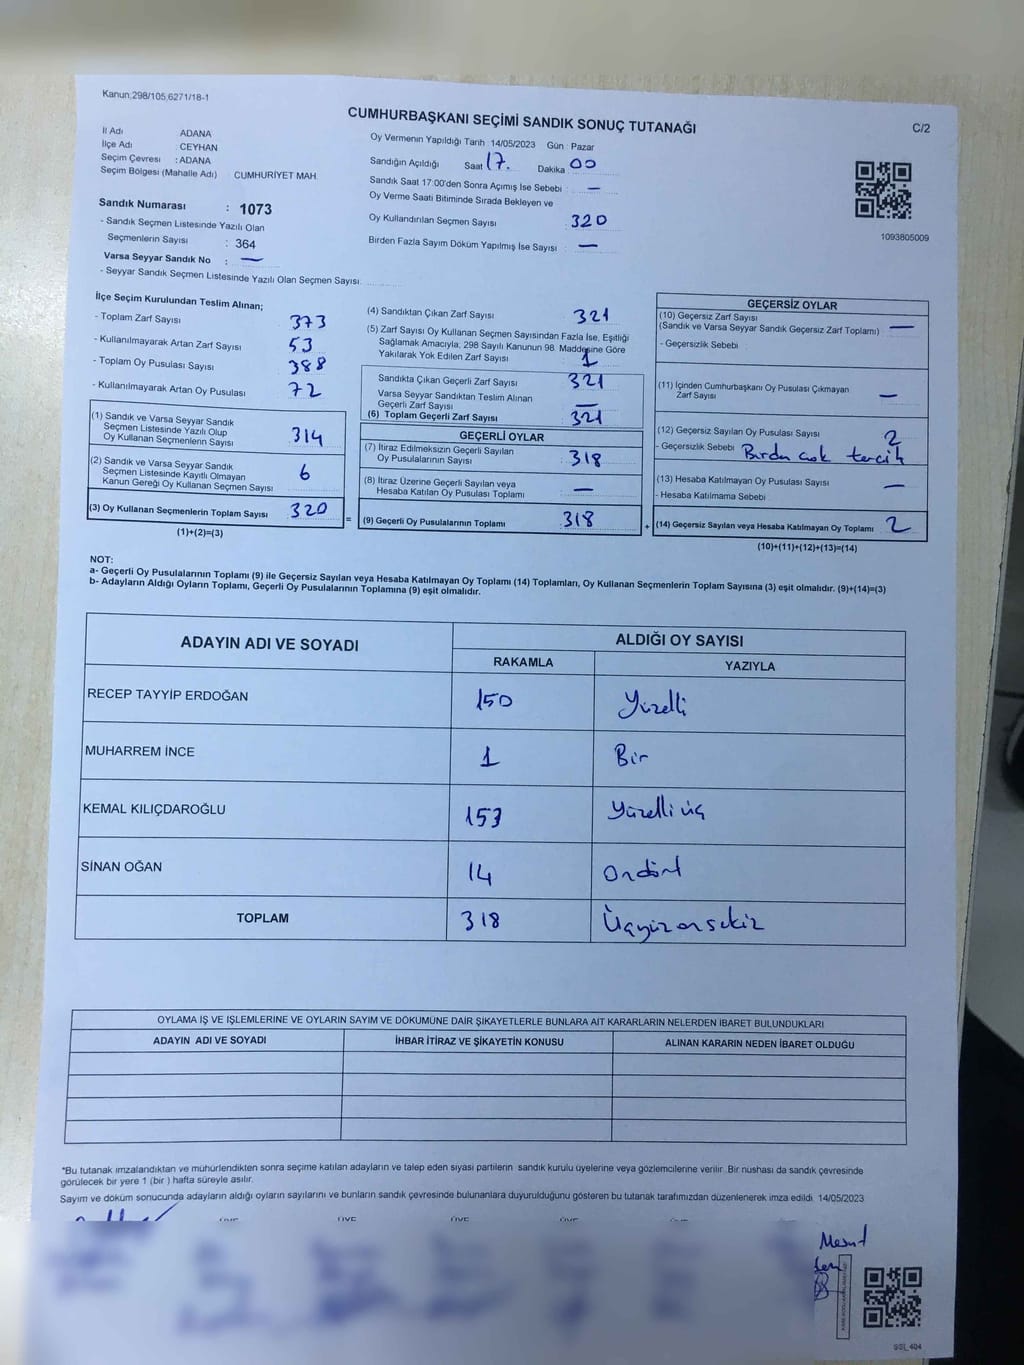 Kanun;298/105,6271/18-1
CUMHURBAŞKANI SEÇİMİ SANDIK SONUÇ TUTANAĞI
C/2
İl Adı ADANA
İlçe Adı : CEYHAN
Seçim Çevresi : ADANA
Seçim Bölgesi (Mahalle Adı) : CUMHURİYET MAH.
Sandık Numarası : 1073
- Sandık Seçmen Listesinde Yazılı Olan
Seçmenlerin Sayısı : 364
Varsa Seyyar Sandık No : —
- Seyyar Sandık Seçmen Listesinde Yazılı Olan Seçmen Sayısı:
Oy Vermenin Yapıldığı Tarih 14/05/2023 Gün : Pazar
Sandığın Açıldığı Saat 17. Dakika 00
Sandık Saat 17:00'den Sonra Açımış İse Sebebi : —
Oy Verme Saati Bitiminde Sırada Bekleyen ve
Oy Kullandırılan Seçmen Sayısı : 320
Birden Fazla Sayım Döküm Yapılmış İse Sayısı : —
1093805009
İlçe Seçim Kurulundan Teslim Alınan;
- Toplam Zarf Sayısı 373
- Kullanılmayarak Artan Zarf Sayısı 53
- Toplam Oy Pusulası Sayısı 388
- Kullanılmayarak Artan Oy Pusulası 72
(1) Sandık ve Varsa Seyyar Sandık
Seçmen Listesinde Yazılı Olup
Oy Kullanan Seçmenlerin Sayısı 314
(2) Sandık ve Varsa Seyyar Sandık
Seçmen Listesinde Kayıtlı Olmayan
Kanun Gereği Oy Kullanan Seçmen Sayısı 6
(3) Oy Kullanan Seçmenlerin Toplam Sayısı 320
(1)+(2)=(3)
=
(4) Sandıktan Çıkan Zarf Sayısı 321
(5) Zarf Sayısı Oy Kullanan Seçmen Sayısından Fazla İse, Eşitliği
Sağlamak Amacıyla; 298 Sayılı Kanunun 98. Maddesine Göre
Yakılarak Yok Edilen Zarf Sayısı 1
Sandıkta Çıkan Geçerli Zarf Sayısı 321
Varsa Seyyar Sandıktan Teslim Alınan
Geçerli Zarf Sayısı —
(6) Toplam Geçerli Zarf Sayısı 321
GEÇERLİ OYLAR
(7) İtiraz Edilmeksizin Geçerli Sayılan
Oy Pusulalarının Sayısı 318
(8) İtiraz Üzerine Geçerli Sayılan veya
Hesaba Katılan Oy Pusulası Toplamı —
(9) Geçerli Oy Pusulalarının Toplamı 318
+
GEÇERSİZ OYLAR
(10) Geçersiz Zarf Sayısı
(Sandık ve Varsa Seyyar Sandık Geçersiz Zarf Toplamı) —
- Geçersizlik Sebebi
(11) İçinden Cumhurbaşkanı Oy Pusulası Çıkmayan
Zarf Sayısı —
(12) Geçersiz Sayılan Oy Pusulası Sayısı 2
- Geçersizlik Sebebi Birden çok tercih
(13) Hesaba Katılmayan Oy Pusulası Sayısı —
- Hesaba Katılmama Sebebi
(14) Geçersiz Sayılan veya Hesaba Katılmayan Oy Toplamı 2
(10)+(11)+(12)+(13)=(14)
NOT:
a- Geçerli Oy Pusulalarının Toplamı (9) ile Geçersiz Sayılan veya Hesaba Katılmayan Oy Toplamı (14) Toplamları, Oy Kullanan Seçmenlerin Toplam Sayısına (3) eşit olmalıdır. (9)+(14)=(3)
b- Adayların Aldığı Oyların Toplamı, Geçerli Oy Pusulalarının Toplamına (9) eşit olmalıdır.
ADAYIN ADI VE SOYADI
ALDIĞI OY SAYISI
RAKAMLA YAZIYLA
RECEP TAYYİP ERDOĞAN 150 Yüzelli
MUHARREM İNCE 1 Bir
KEMAL KILIÇDAROĞLU 153 Yüzelli üç
SİNAN OĞAN 14 Ondört
TOPLAM 318 Üçyüzonsekiz
OYLAMA İŞ VE İŞLEMLERİNE VE OYLARIN SAYIM VE DÖKÜMÜNE DAİR ŞİKAYETLERLE BUNLARA AİT KARARLARIN NELERDEN İBARET BULUNDUKLARI
ADAYIN ADI VE SOYADI İHBAR İTİRAZ VE ŞİKAYETİN KONUSU ALINAN KARARIN NEDEN İBARET OLDUĞU
*Bu tutanak imzalandıktan ve mühürlendikten sonra seçime katılan adayların ve talep eden siyasi partilerin sandık kurulu üyelerine veya gözlemcilerine verilir. Bir nüshası da sandık çevresinde
görülecek bir yere 1 (bir ) hafta süreyle asılır.
Sayım ve döküm sonucunda adayların aldığı oyların sayılarını ve bunların sandık çevresinde bulunanlara duyurulduğunu gösteren bu tutanak tarafımızdan düzenlenerek imza edildi. 14/05/2023
ÜYE ÜYE ÜYE ÜYE ÜYE
Mesut